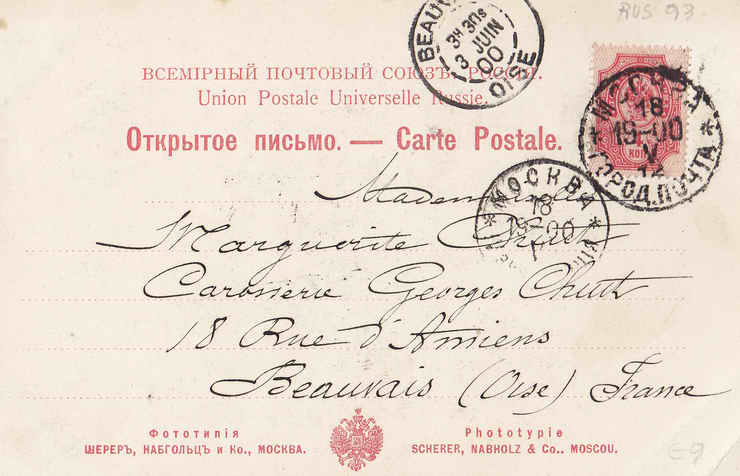 RUS 93
BEAUVAIS
3H 30S
3 JUIN
00
OISE
ВСЕМІРНЫЙ ПОЧТОВЫЙ СОЮЗЪ. РОССІЯ.
Union Postale Universelle Russie.
Открытое письмо. — Carte Postale.
МОСКВА
18
19-00
V
12
ГОРОД. ПОЧТА
МОСКВА
18
19-00
Mademoiselle
Marguerite
Carosserie Georges
18 Rue d'Amiens
Beauvais (Oise) France
Фототипія
ШЕРЕРЪ, НАБГОЛЬЦЪ и Ко., МОСКВА.
Phototypie
SCHERER, NABHOLZ & Co.. MOSCOU.